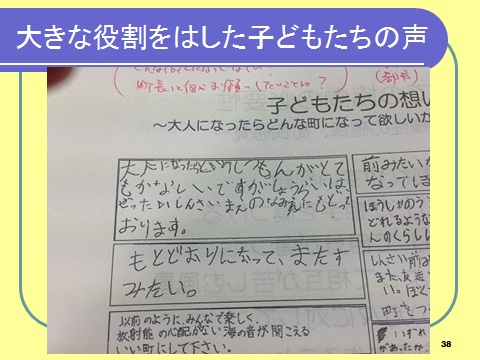 大きな役割をはした子どもたちの声
町長に何かお願いしたいことは?
子どもたちの想い
~大人になったらどんな町になって欲しいか
大人になったらというしつもんがとて
もかなしいですがしょうらいは、
ぜったいしんさいまえのなみえにもどって
おります。
もとどおりになって、またす
みたい。
以前のように、みんなで楽しく、
放射能の心配がない海の音が聞こえる
いい町にして下さい。
前みたい
なってほ
ほうしゃのう
どれるような
んのくらし
しんさい前
また、友達
町をつ
いずれ
があったか
38